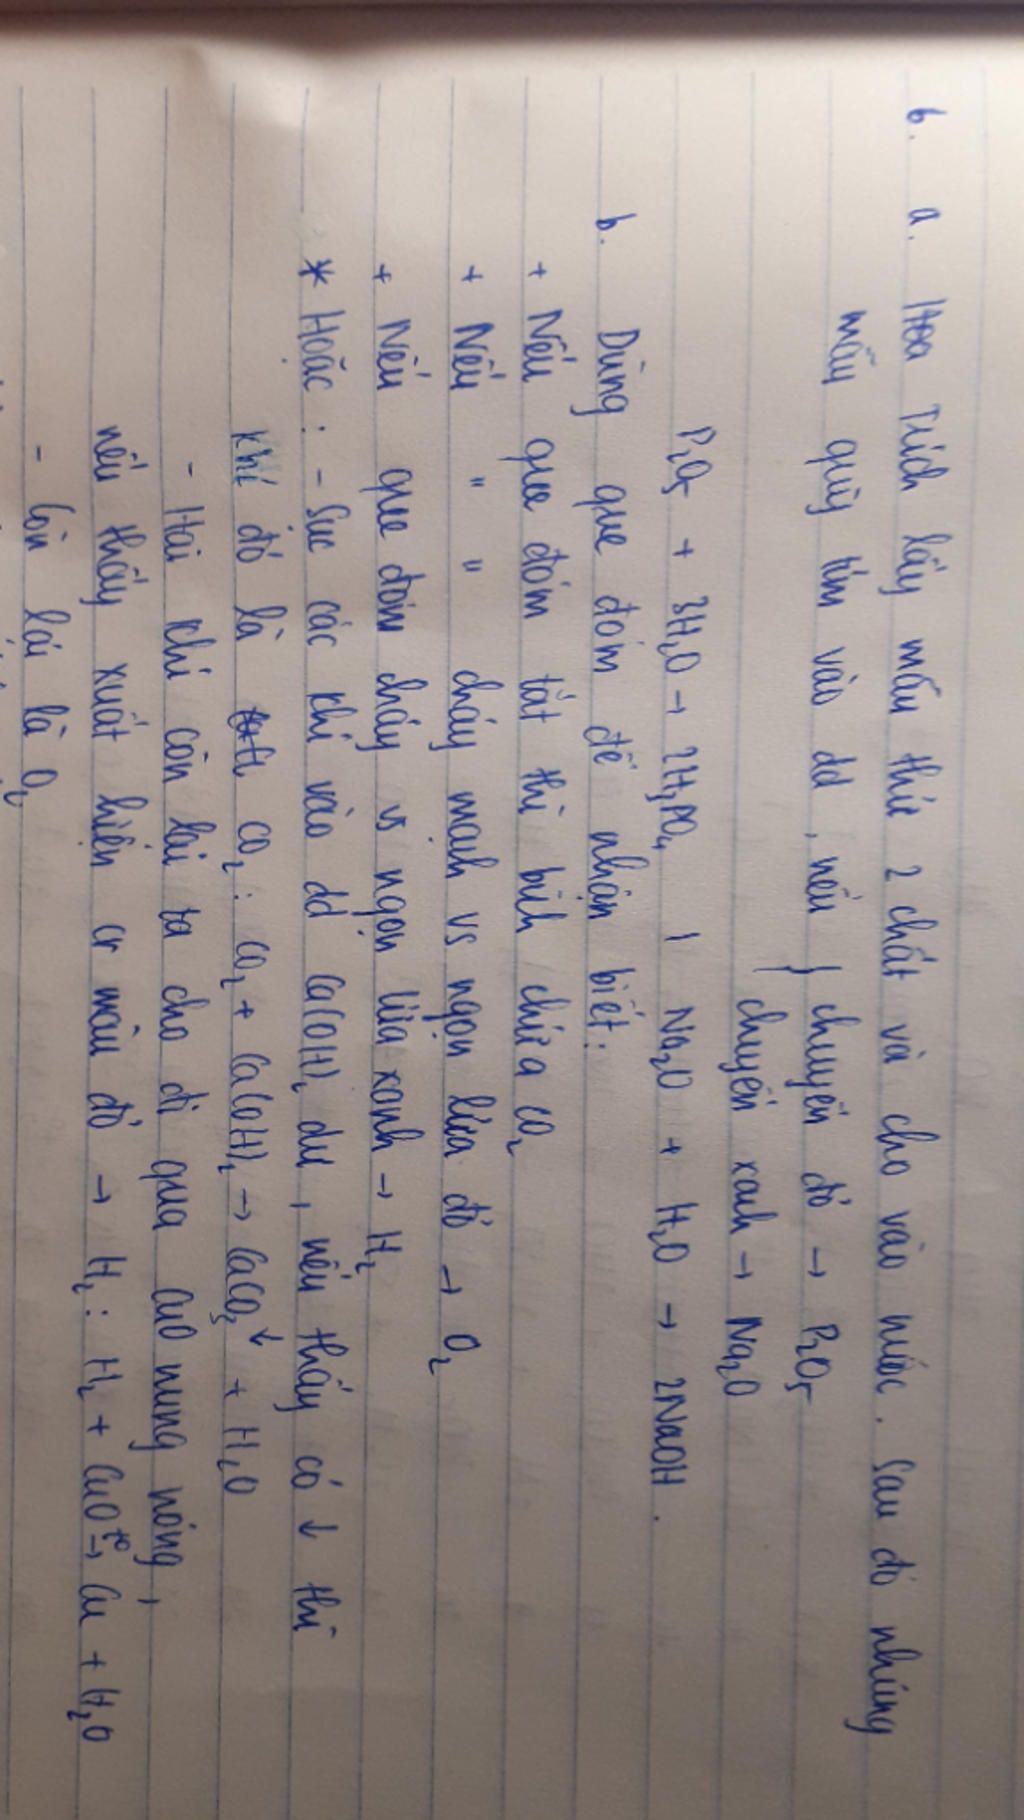 6. a. Hoa Trích lấy mẫu thử 2 chất và cho vào nước. Sau đó nhúng
mẩu quỳ tím vào dd, nếu { chuyển đỏ → P2O5
chuyển xanh → Na2O
P2O5 + 3H2O → 2H3PO4 | Na2O + H2O → 2NaOH.
b. Dùng que đóm để nhận biết:
+ Nếu que đóm tắt thì bình chứa CO2
+ Nếu " " cháy mạnh vs ngọn lửa đỏ → O2
+ Nếu que đóm cháy vs ngọn lửa xanh → H2
* Hoặc : - Sục các khí vào dd Ca(OH)2 dư, nếu thấy có ↓ thì
khí đó là CO2 : CO2 + Ca(OH)2 → CaCO3↓ + H2O
- Hai khí còn lại ta cho đi qua CuO nung nóng,
nếu thấy xuất hiện cr màu đỏ → H2 : H2 + CuO t°→ Cu + H2O
- Còn lại là O2